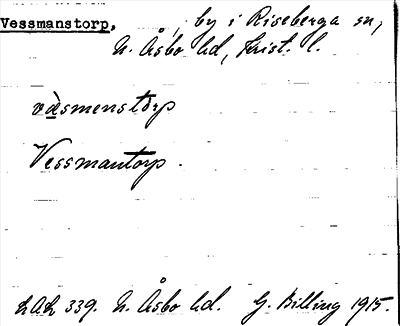 Vessmanstorp, by i Riseberga sn,
N. Åsbo hd, Krist. l.
vàsmenstorp
Vessmantorp.
LAL 339. N. Åsbo hd. G. Billing 1915.